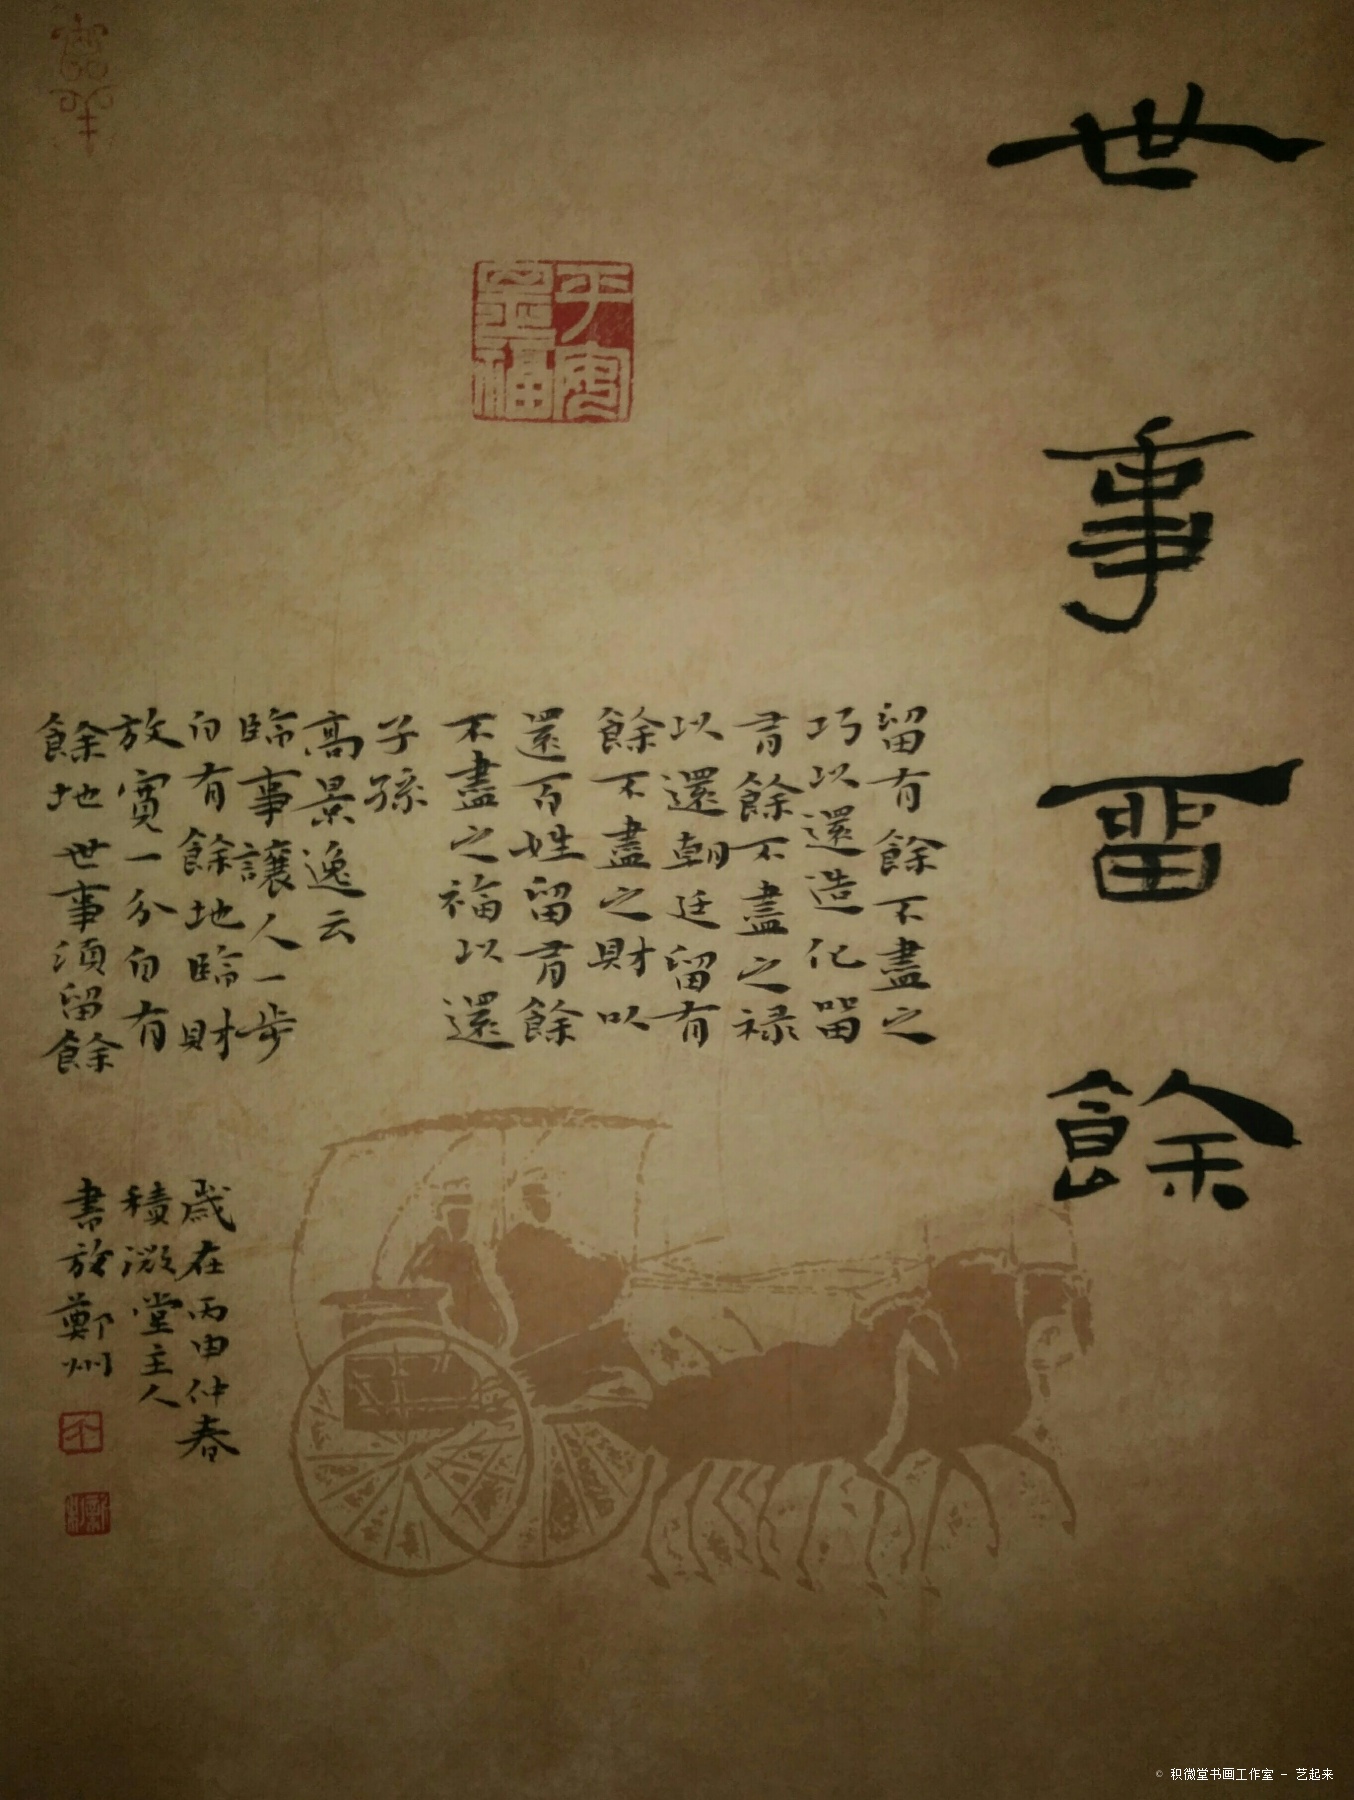 世事畱餘
平安是福
留有餘不盡之
巧以還造化留
有餘不盡之禄
以還朝廷留有
餘不盡之財以
還百姓留有餘
不盡之福以還
子孫
高景逸云
臨事讓人一步
自有餘地臨財
放寬一分自有
餘地世事須留餘
歲在丙申仲春
積微堂主人
書於鄭州
© 积微堂书画工作室 - 艺起来